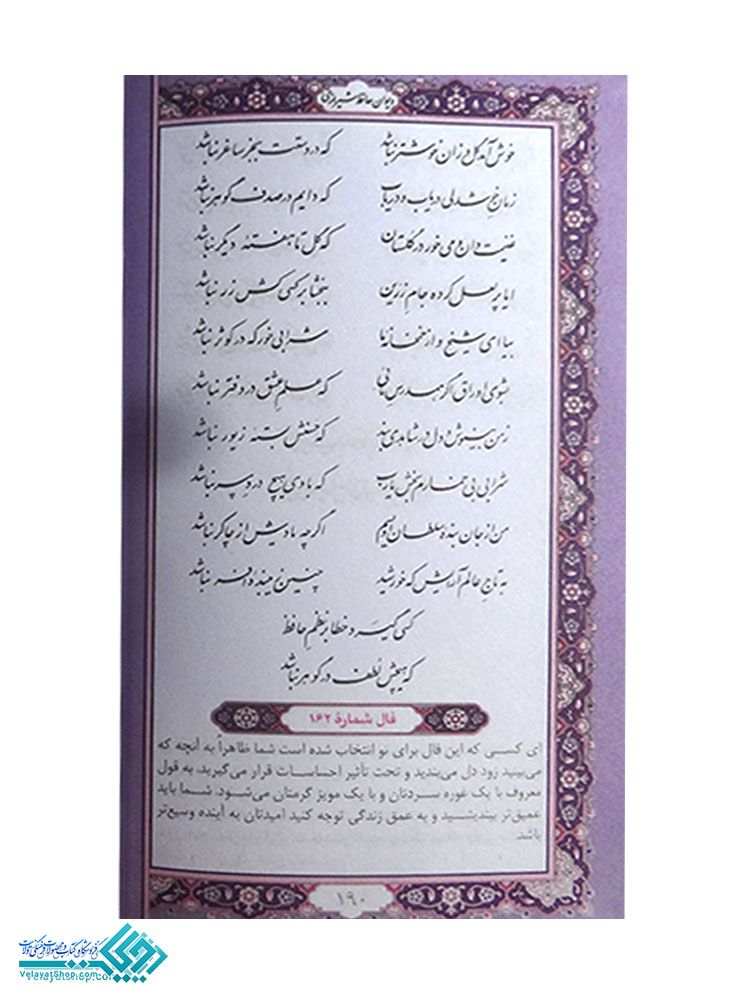 دیوان حافظ شیرازی
خوش آمد گل وزان خوشتر نباشد که در دستت بجز ساغر نباشد
زمان خوشدلی دریاب و دریاب که دایم در صدف گوهر نباشد
غنیمت دان و می خور در گلستان که گل تا هفتهٔ دیگر نباشد
ایا پر لعل کرده جام زرین ببخشا بر کسی کش زر نباشد
بیا ای شیخ و از خمخانهٔ ما شرابی خور که در کوثر نباشد
بشوی اوراق اگر همدرس مائی که علم عشق در دفتر نباشد
ز من بنیوش و دل در شاهدی بند که حسنش بستهٔ زیور نباشد
شرابی بی خمارم بخش یا رب که با وی هیچ درد سر نباشد
من از جان بندهٔ سلطان اویسم اگر چه یادش از چاکر نباشد
به تاج عالم آرایش که خورشید چنین زیبندهٔ افسر نباشد
کسی گیرد خطا بر نظم حافظ
که هیچش لطف در گوهر نباشد
فال شمارهٔ ۱۶۲
ای کسی که این فال برای تو انتخاب شده است شما ظاهراً به آنچه که
می‌بینید زود دل می‌بندید و تحت تأثیر احساسات قرار می‌گیرید. به قول
معروف با یک غوره سردتان و با یک مویز گرمتان می‌شود. شما باید
عمیق‌تر بیندیشید و به عمق زندگی توجه کنید امیدتان به آینده وسیع‌تر
باشد.
۱۹۰
فروشگاه کتاب و محصولات فرهنگی ولایت
VelayatShop.com
Velayatshop.com